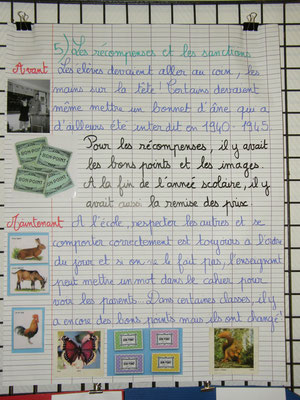 5) Les récompenses et les sanctions
Avant
Les élèves devaient aller au coin, les
mains sur la tête ! Certains devaient
même mettre un bonnet d'âne qui a
d'ailleurs été interdit en 1940-1945.
Pour les récompenses, il y avait
les bons points et les images.
A la fin de l'année scolaire, il y
avait aussi la remise des prix
BON POINT
BON POINT
BON POINT
Maintenant
A l'école, respecter les autres et se
comporter correctement est toujours à l'ordre
du jour et si on ne le fait pas, l'enseignant
peut mettre un mot dans le cahier pour
voir les parents. Dans certaines classes, il y
a encore des bons points mais ils ont changé !